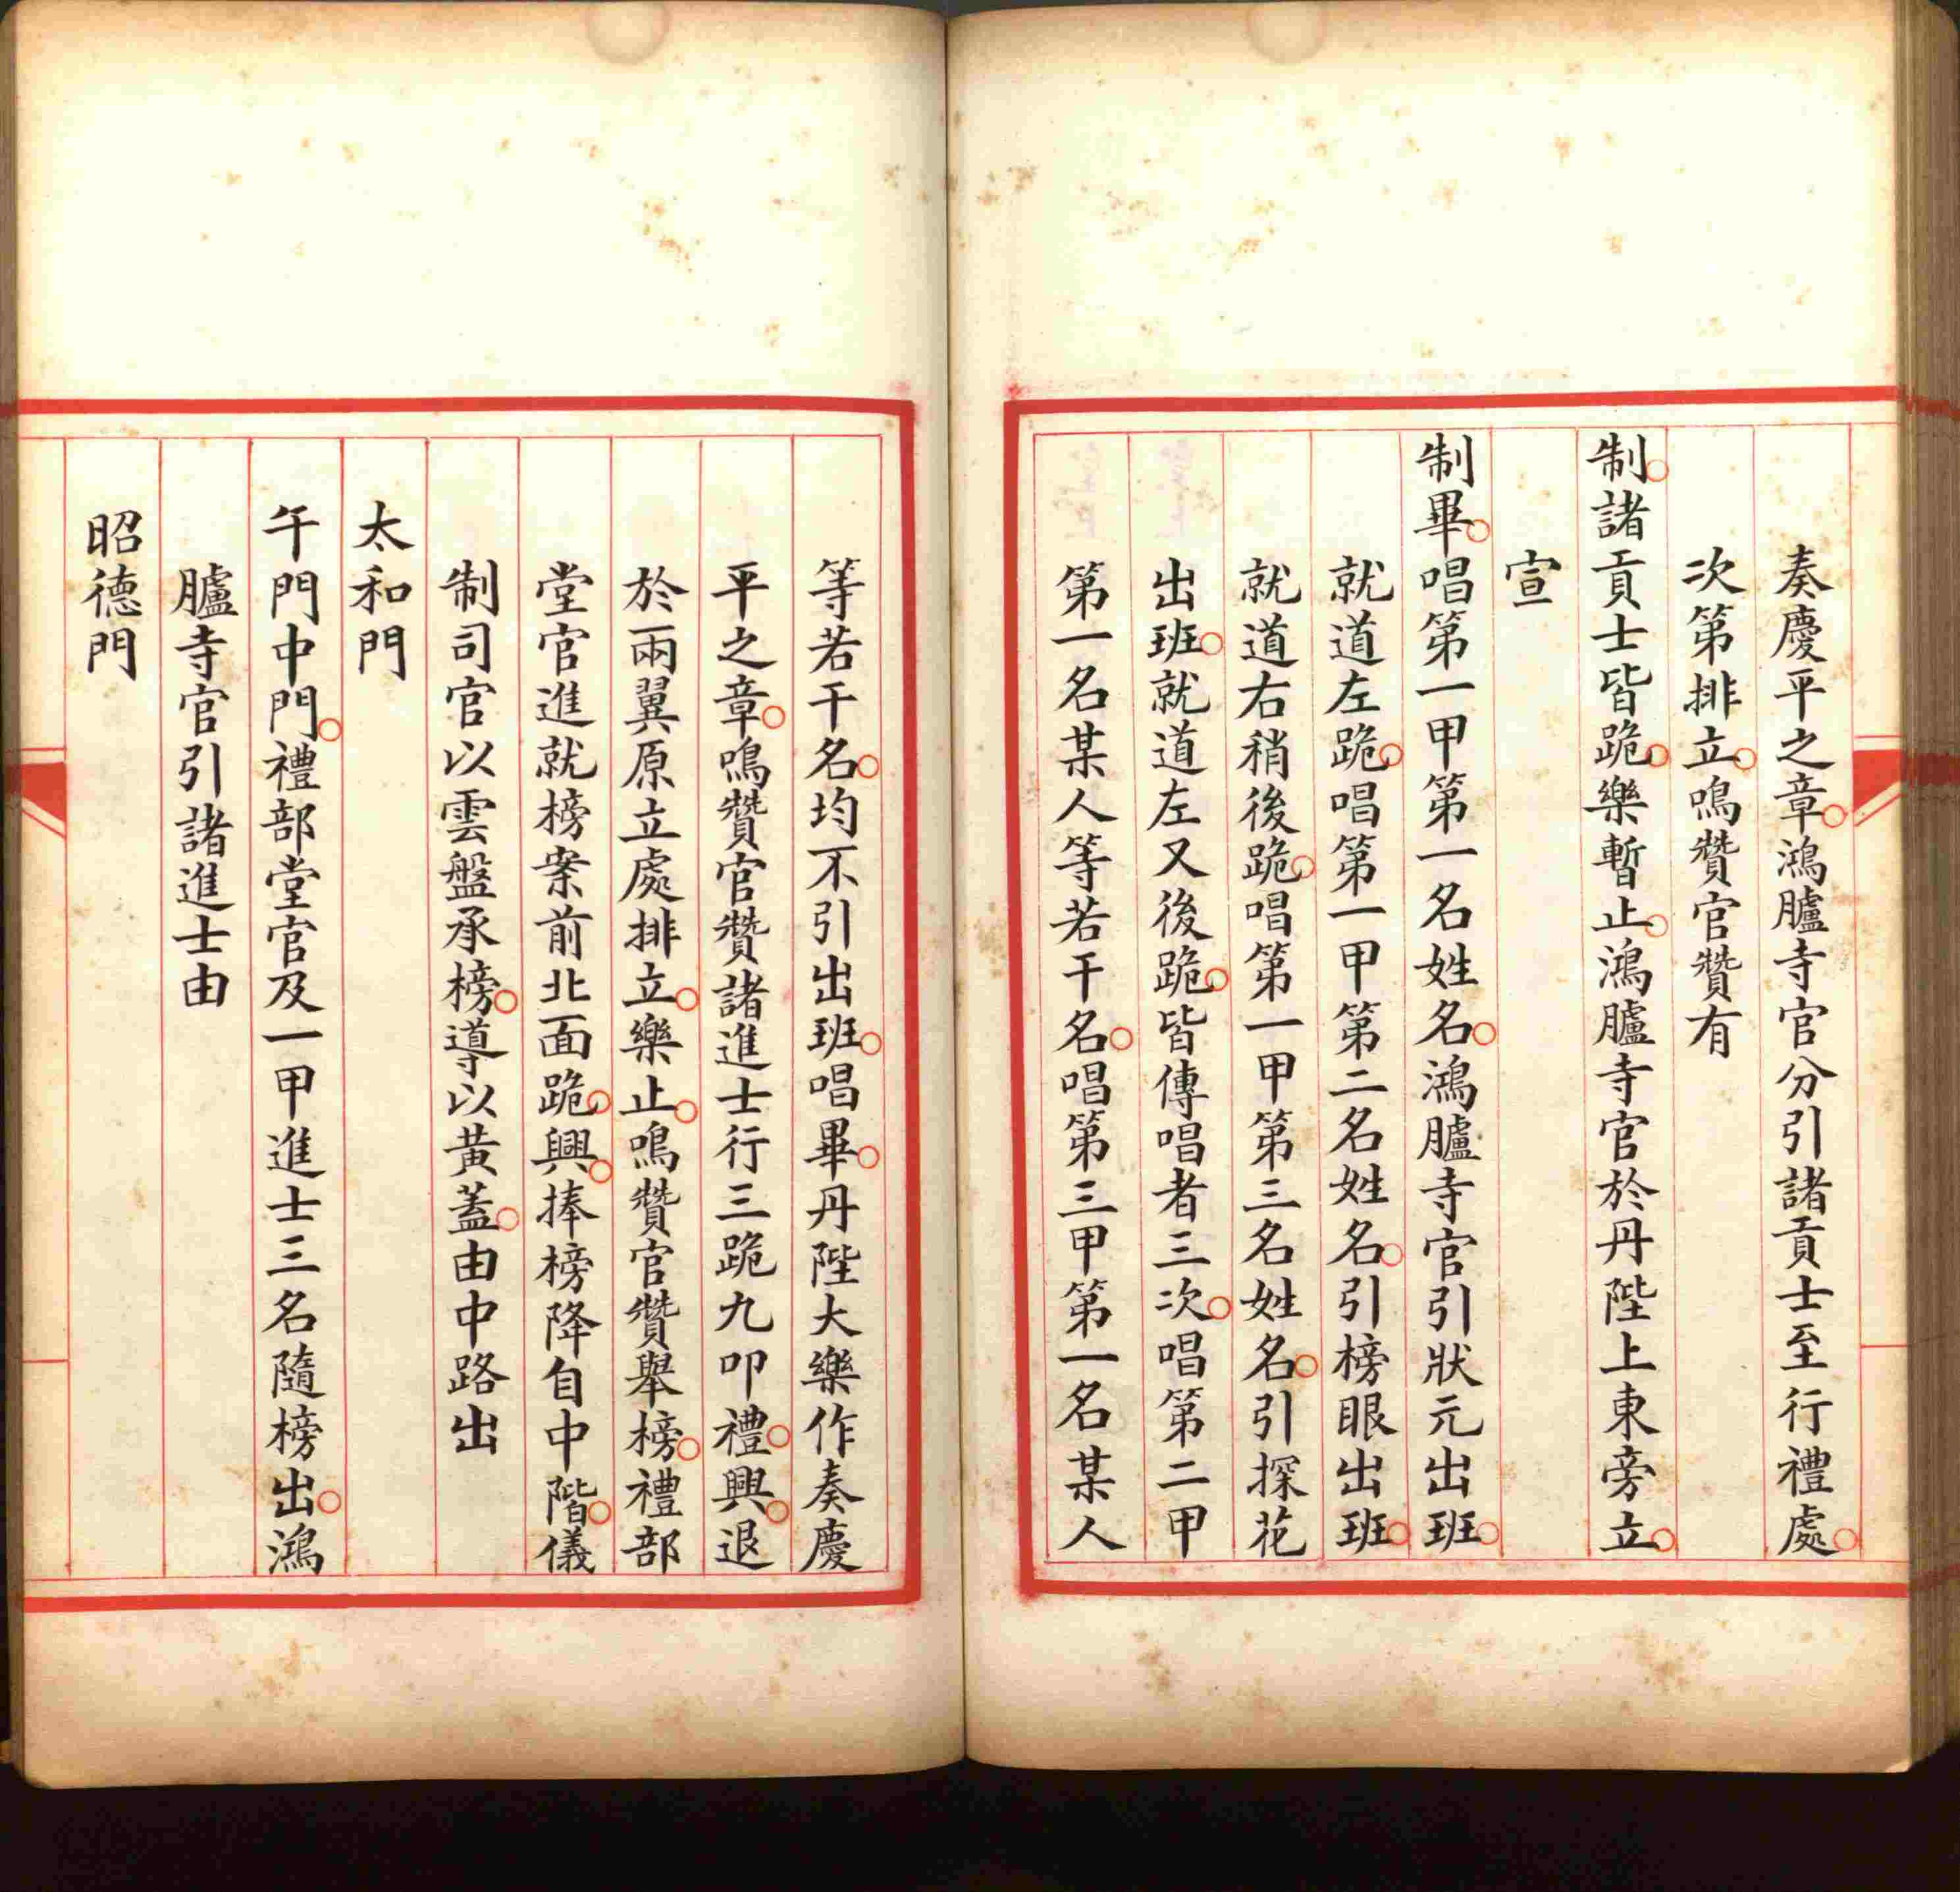 奏慶平之章○鴻臚寺官分引諸貢士至行禮處○
次第排立○鳴贊官贊有
制○諸貢士皆跪○樂暫止○鴻臚寺官於丹陛上東旁立○
宣
制畢○唱第一甲第一名姓名○鴻臚寺官引狀元出班○
就道左跪○唱第一甲第二名姓名○引榜眼出班○
就道右稍後跪○唱第一甲第三名姓名○引探花
出班○就道左又後跪○皆傳唱者三次○唱第二甲
第一名某人等若干名○唱第三甲第一名某人
等若干名○均不引出班○唱畢○丹陛大樂作奏慶
平之章○鳴贊官贊諸進士行三跪九叩禮○興○退
於兩翼原立處排立○樂止○鳴贊官贊舉榜○禮部
堂官進就榜案前北面跪○興○捧榜降自中階○儀
制司官以雲盤承榜○導以黃蓋○由中路出
太和門
午門中門○禮部堂官及一甲進士三名隨榜出○鴻
臚寺官引諸進士由
昭德門